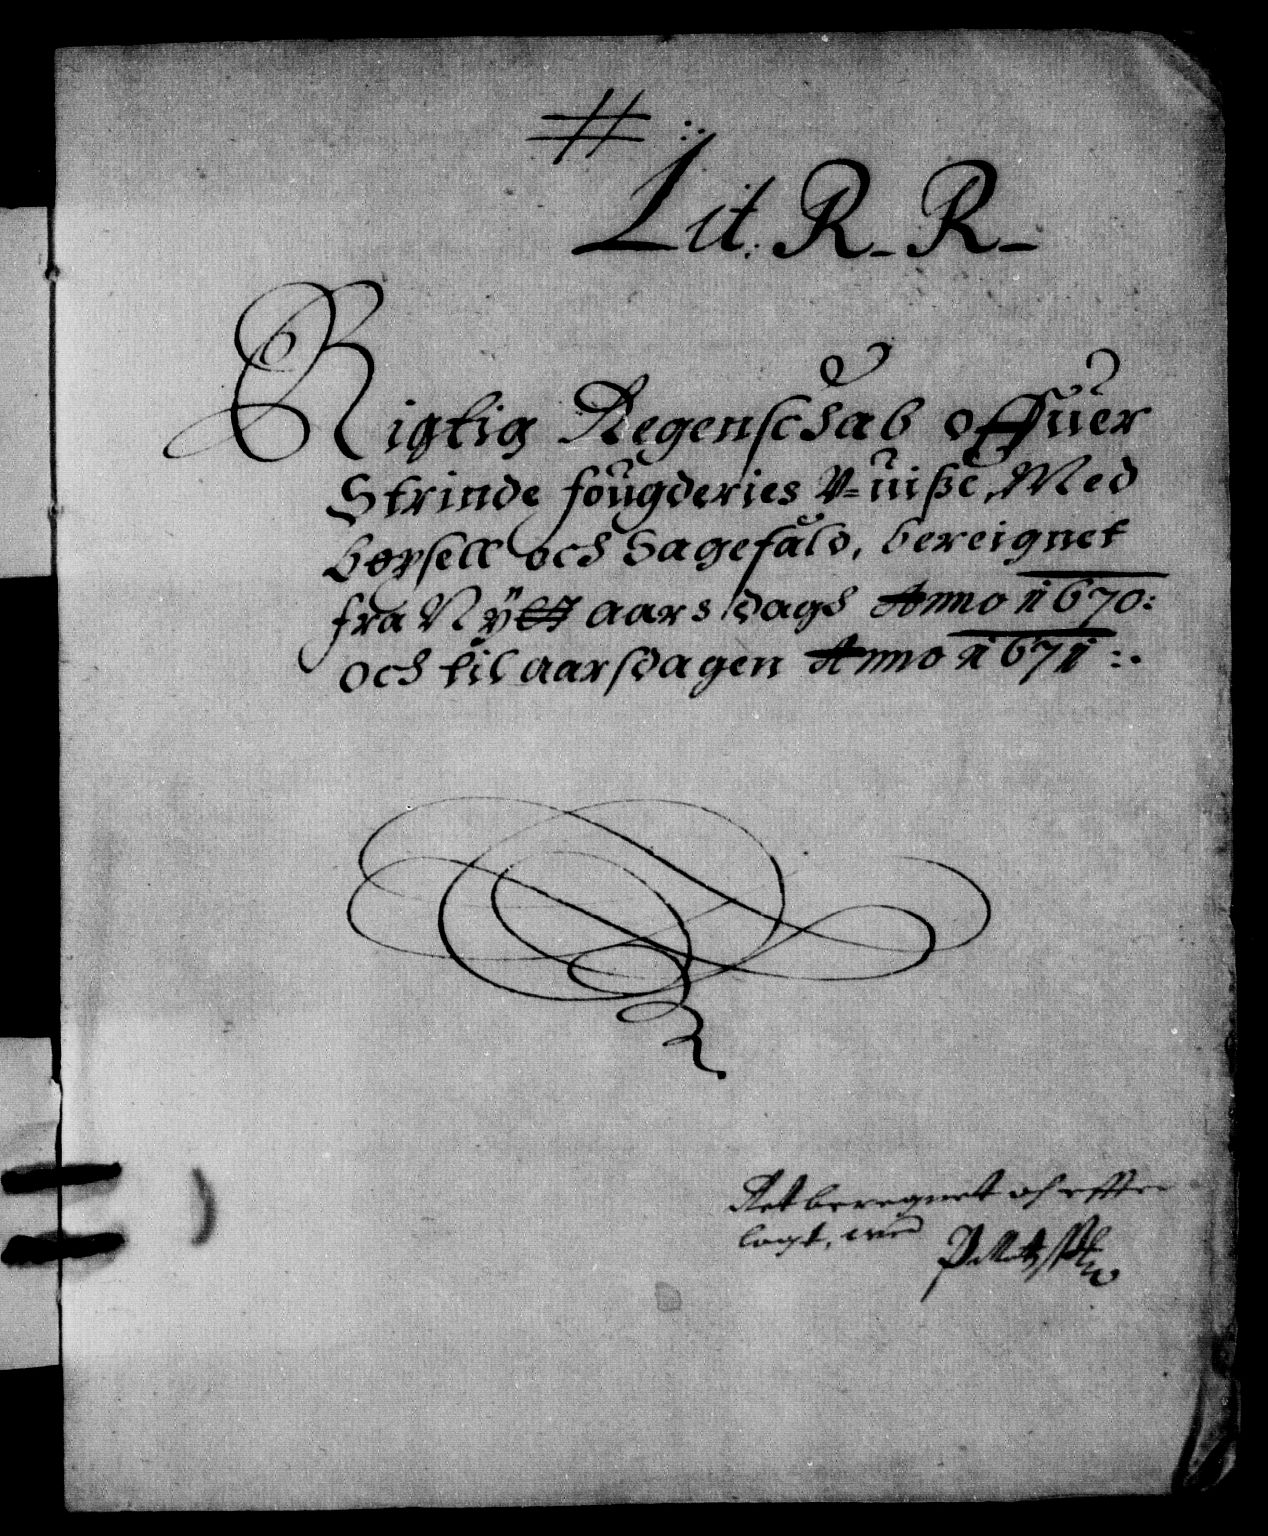 # :.
Lit. R. R.
Rigtig Regenschab offuer
Strinde fougderies V-uiße, Med
bøxsell och Sagefald, bereignet
fra Nÿtt aars dagh Anno 1670:
och til aarsdagen Anno 1671:.
Ret beregnett och effter
lagt, med